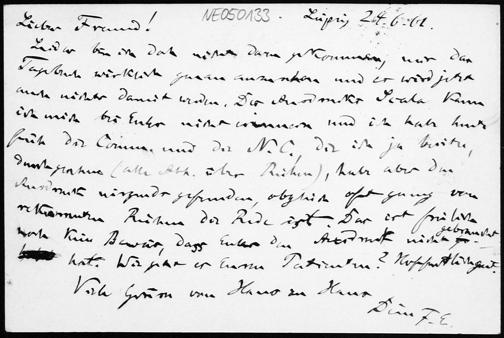 NE050133. Leipzig 24.6.61.
Lieber Freund!
Leider bin ich doch nicht dazu gekommen, mir das
Tagebuch wirklich genau anzusehen und es wird jetzt
auch nichts damit werden. Der Ausdruck Scala kann
ich mich bei Euler nicht erinnern und ich habe heute
früh die und die N.C., die ich ja besitze,
durchgesehen (alle Abh. über Reihen), habe aber den
Ausdruck nirgends gefunden, obgleich oft genug von
rekurrenten Reihen die Rede ist. Das ist freilich
noch kein Beweis, dass Euler den Ausdruck nicht gebraucht
hat. Wie geht es Euren Patienten? Hoffentlich gut.
Viele Grüsse von Haus zu Haus
Dein F.E.